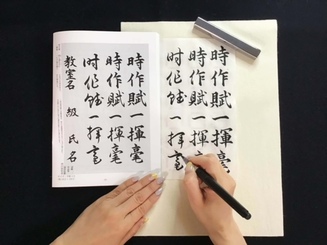 時作賦一揮毫
時作賦一揮毫
时作賦一揮毫
教室名 級 氏名
時作賦一揮毫
時作賦一揮毫
时作賦一揮毫